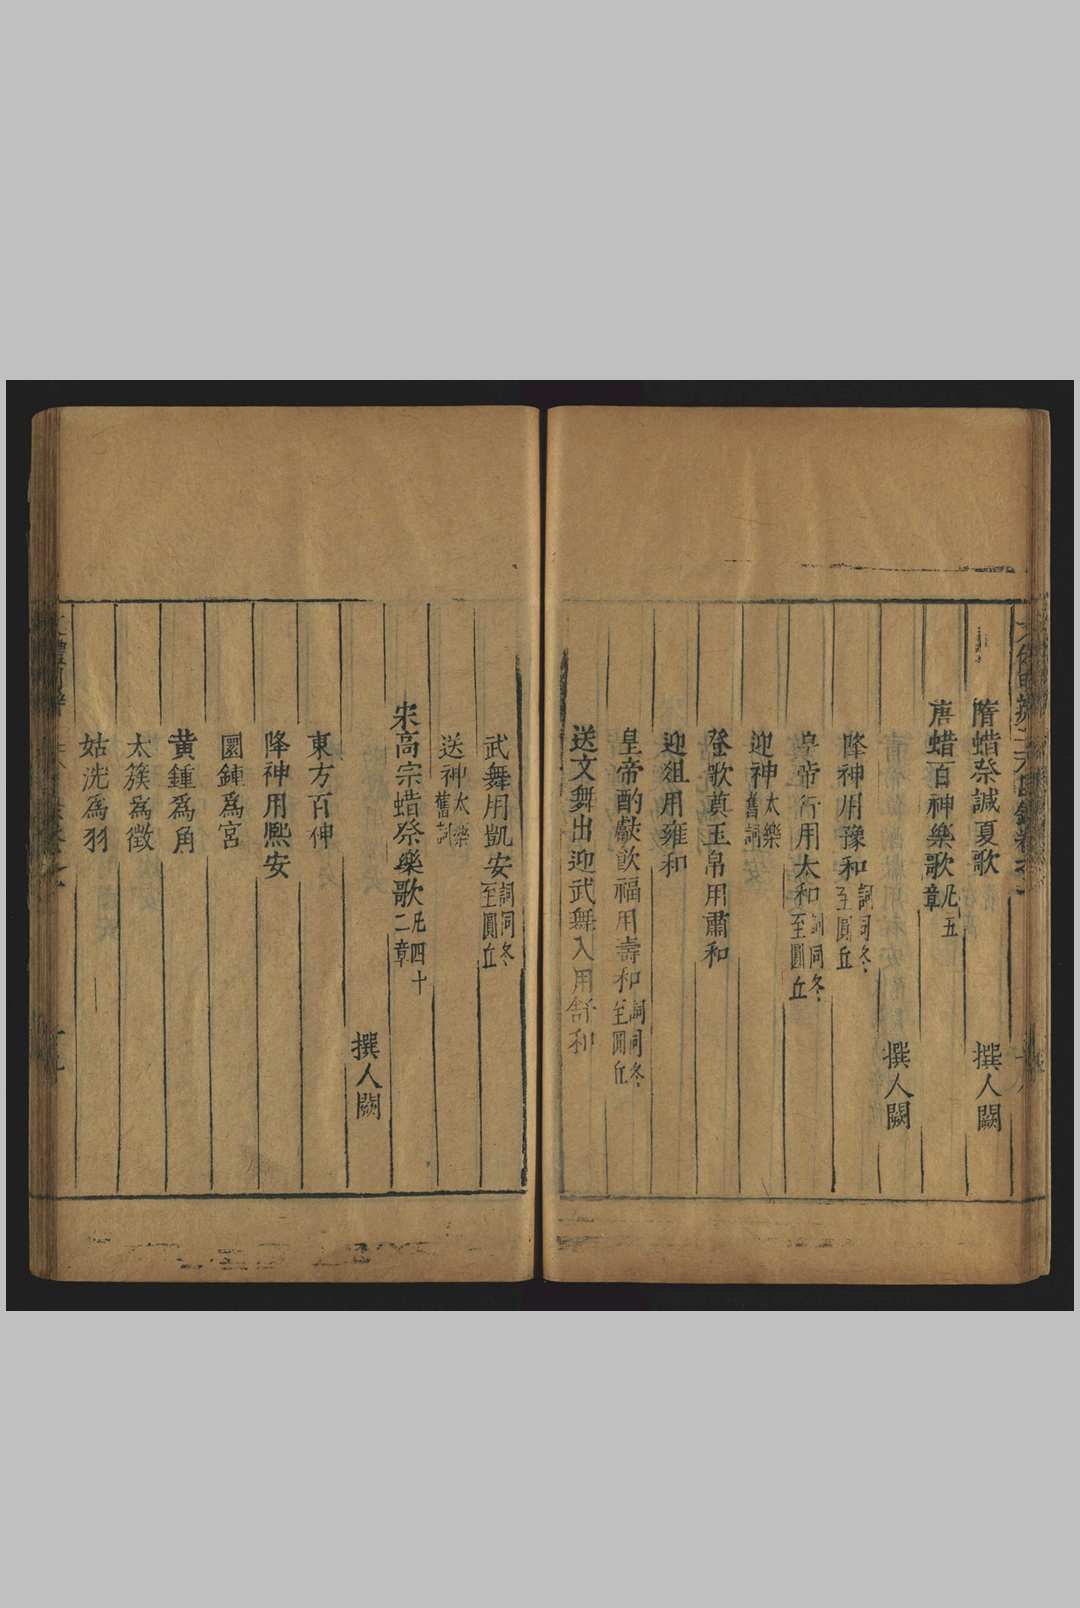 隋蜡祭諴夏歌
撰人闕
唐蜡百神樂歌凡五章
撰人闕
降神用豫和詞同冬至圓丘
皇帝行用太和詞同冬至圓丘
迎神太樂舊詞
登歌奠玉帛用肅和
迎俎用雍和
皇帝酌獻飲福用壽和詞同冬至圓丘
送文舞出迎武舞入用舒和
武舞用凱安詞同冬至圓丘
送神太樂舊詞
宋高宗蜡祭樂歌凡四十二章
撰人闕
東方百神
降神用熈安
圜鍾爲宮
黃鍾爲角
太簇爲徵
姑洗爲羽